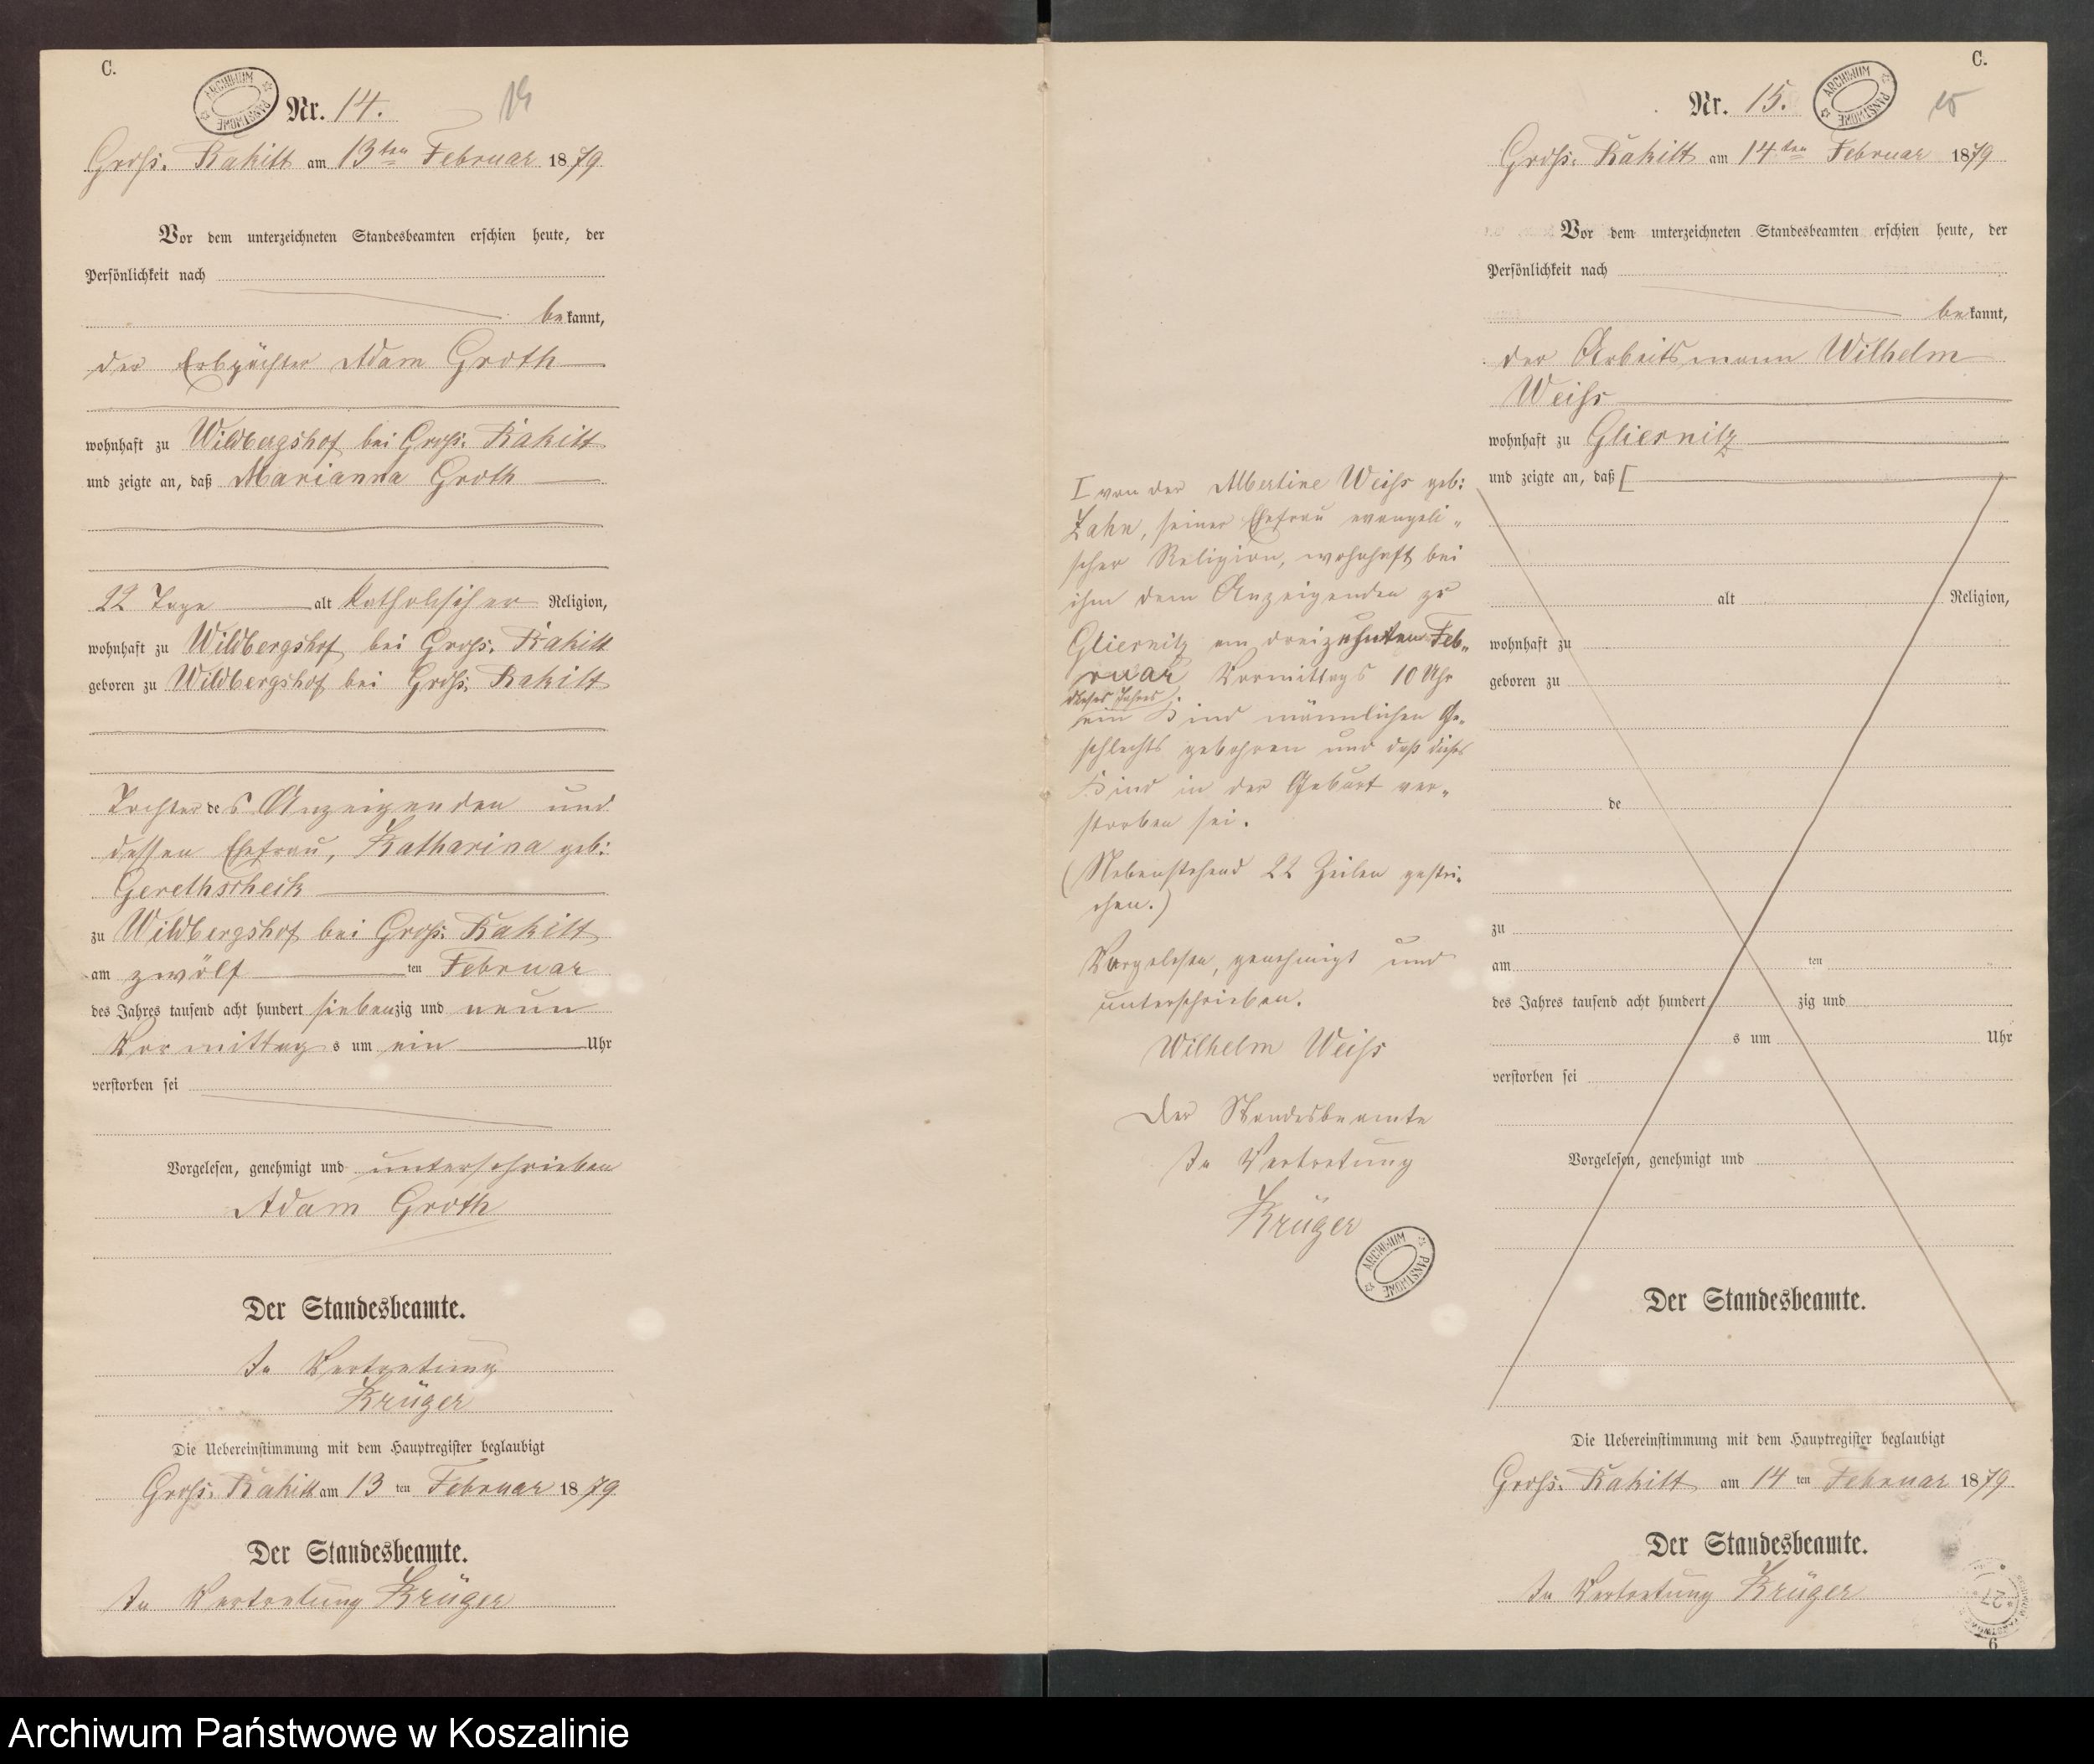 C.
ARCHIWUM PAŃSTWOWE
Nr. 14.
14
Groß. Rakitt am 13ten Februar 1879
Vor dem unterzeichneten Standesbeamten erschien heute, der
Persönlichkeit nach
bekannt,
der Erbpächter Adam Groth
wohnhaft zu Wildbergshof bei Groß. Rakitt
und zeigte an, daß Marianna Groth
22 Tage alt katholischer Religion,
wohnhaft zu Wildbergshof bei Groß. Rakitt
geboren zu Wildbergshof bei Groß. Rakitt
Tochter des Anzeigenden und
dessen Ehefrau, Katharina geb:
Gerethscheck
zu Wildbergshof bei Groß. Rakitt
am zwölf ten Februar
des Jahres tausend acht hundert siebenzig und neun
Vormittags um ein Uhr
verstorben sei
Vorgelesen, genehmigt und unterschrieben
Adam Groth
Der Standesbeamte.
In Vertretung
Krüger
Die Uebereinstimmung mit dem Hauptregister beglaubigt
Groß. Rakitt am 13 ten Februar 1879
Der Standesbeamte.
In Vertretung Krüger
C.
Nr. 15.
ARCHIWUM PAŃSTWOWE
15
Groß. Rakitt am 14ten Februar 1879
Vor dem unterzeichneten Standesbeamten erschien heute, der
Persönlichkeit nach
bekannt,
der Arbeitsmann Wilhelm
Weiß
wohnhaft zu Gliesnitz
und zeigte an, daß [
alt Religion,
wohnhaft zu
geboren zu
de
zu
am ten
des Jahres tausend acht hundert zig und
s um Uhr
verstorben sei
Vorgelesen, genehmigt und
Der Standesbeamte.
I von der Albertine Weiß geb:
Zahn, seiner Ehefrau evangeli„
scher Religion, wohnhaft bei
ihm dem Anzeigenden zu
Gliesnitz am dreizehnten Feb„
ruar Vormittags 10 Uhr
dieses Jahres
ein Kind männlichen Ge„
schlechts geboren und daß dieses
Kind in der Geburt ver„
storben sei.
(Nebenstehend 22 Zeilen gestri„
chen.)
Vorgelesen, genehmigt und
unterschrieben.
Wilhelm Weiß
Der Standesbeamte
In Vertretung
Krüger
ARCHIWUM PAŃSTWOWE
Die Uebereinstimmung mit dem Hauptregister beglaubigt
Groß. Rakitt am 14 ten Februar 1879
Der Standesbeamte.
In Vertretung Krüger
27
6
Archiwum Państwowe w Koszalinie